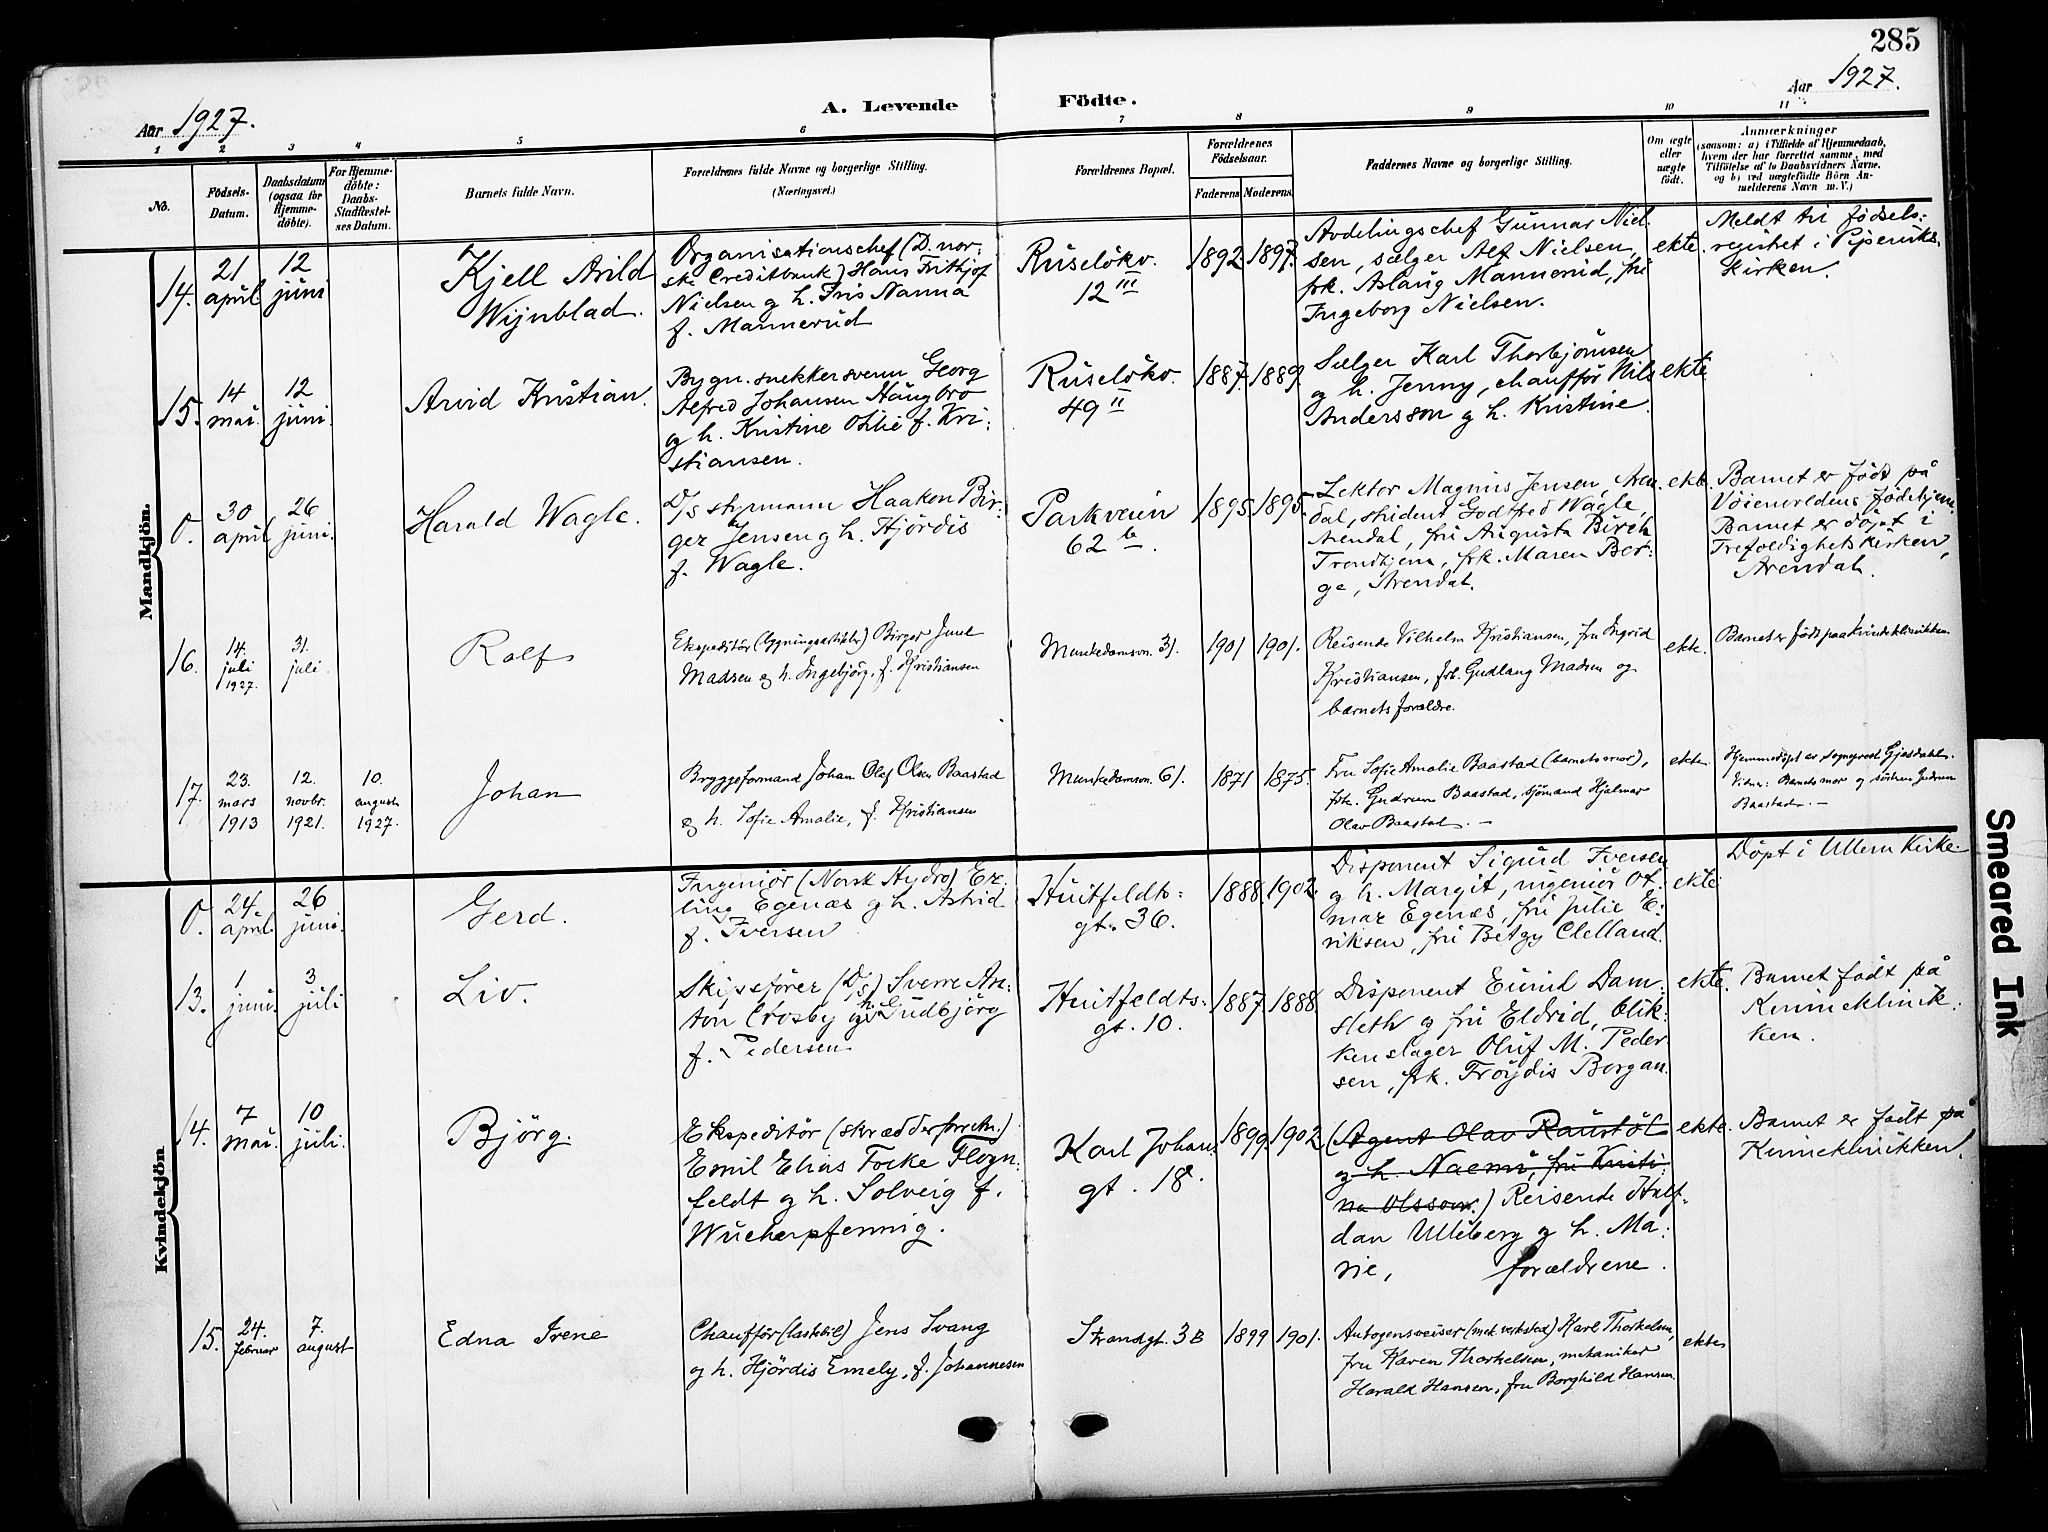 285
Aar 1927.
A. Levende Födte.
Aar 1927.
1 2 3 4 5 6 7 8 9 10 11
No.
Födsels-
Datum.
Daabsdatum
(ogsaa for
Hjemme-
döbte).
For Hjemme-
döbte:
Daabs-
Stadfæstel-
ses Datum.
Barnets fulde Navn.
Forældrenes fulde Navne og borgerlige Stilling.
(Næringsvei.)
Forældrenes Bopæl.
Forældrenes
Födselsaar.
Faderens. Moderens.
Faddernes Navne og borgerlige Stilling.
Om ægte
eller
uægte
födt.
Anmærkninger
(saasom: a) i Tilfælde af Hjemmedaab,
hvem der har forrettet samme, med
Tilföielse af to Daabsvidners Navne.
og b) ved uægtefödte Börn An-
melderens Navn m.V.)
Mandkjön.
14.
21
april
12
juni
Kjell Arild
Wijnblad.
Organisationschef (D. nor-
ske Creditbank) Hans Frithjof
Nielsen g h. Iris Nanna
f. Mannerud
Ruselökv.
12 III
1892 1897.
Avdelingschef Gunnar Niel-
sen, sælger Alf Nielsen,
frk. Aslaug Mannerud, fru
Ingeborg Nielsen.
ekte.
Meldt til födsels-
registret i Piperviks-
kirken.
15.
14
mai.
12
juni.
Arvid Kristian.
Bygn. snekkersvenn Georg
Alfred Johansen Haugbro
og h. Kristine Otilie f. Kri-
stiansen.
Ruselökv.
49 II
1887. 1889
Selger Karl Thorbjörnsen
og h. Jenny, chaufför Nils
Andersson g h. Kristine
ekte
0.
30
april
26
juni.
Harald Wagle.
D/s styrmann Haakon Bir-
ger Jensen g h. Hjördis
f. Wagle.
Parkveien
62 b.
1895 1895.
Lektor Magnus Jensen, Aren-
dal, student Godtfred Wagle,
Arendal, fru Augusta Birch
Trondhjem, frk. Maren Bor-
ge, Arendal.
ekte.
Barnet er født på
Vöienvoldens födehjem.
Barnet er döpt i
Trefoldighetskirken,
Arendal.
16.
14.
juli
1927.
31.
juli.
Rolf
Ekspeditör (bygningsartikler) Birger Juul
Madsen og h. Ingebjörg, f. Kristiansen
Munkedamsvn. 31.
1901 1901.
Reisende Vilhelm Kristiansen, fru Ingrid
Kristiansen, frk. Gudlaug Madsen og
barnets forældre.
ekte.
Barnet er födt paa Kvindeklinikken
17.
23.
mars
1913
12.
novbr.
1921.
10.
august
1927.
Johan
Bryggeformand Johan Olaf Olsen Baastad
og h. Sofie Amalie, f. Kristiansen
Munkedamsvn. 61.
1871 1875.
Fru Sofie Amalie Baastad (barnets mor),
frk. Gudrun Baastad, sjömand Hjalmar
Olav Baastad. —
ekte.
Hjemmedöpt er Sogneprest Gjesdahl.
Vidner: Barnets mor og söster Gudrun
Baastad. —
Kvindekjön
0.
24.
april.
26
juni.
Gerd.
Ingeniör (Norsk Hydro) Er-
ling Egenæs g h. Astrid
f. Iversen
Huitfeldts-
gt. 36.
1888 1902.
Disponent Sigurd Iversen
g h. Margit, ingeniör Ot-
mar Egenæs, fru Julie E-
riksen, fru Betzy Clelland.
ekte
Döpt i Ullern Kirke.
13.
1
juni.
3
juli
Liv.
Skipsförer (D/s) Sverre An-
ton Crosby og h. Gudbjörg
f. Pedersen
Huitfeldts-
gt. 10.
1887. 1888.
Disponent Eivind Dam-
sleth g fru Eldrid, blik-
kenslager Oluf M. Peder-
sen, frk. Fröydis Borgan.
ekte.
Barnet født på
Kvinneklinik-
ken.
14.
7
mai.
10
juli.
Björg.
Ekspeditör (skrædderforretn.)
Emil Elias Focke Flogn-
feldt g h. Solveig f.
Wucherpfennig.
Karl Johans
gt. 18.
1899. 1902
(Agent Olav Raustöl
g h. Naemi, fru Kristi-
na Olsson.) Reisende Half-
dan Ulleberg g h. Ma-
rie, forældrene.
ekte.
Barnet er födt på
Kvinneklinikken.
15.
24.
februar
7.
august
Edna Irene
Chaufför (lastebil) Jens Svang
og h. Hjördis Emely, f. Johannesen
Strandgt. 3B
1899 1901.
Autogensveiser (mek. verksted) Karl Thorkelsen,
fru Karen Thorkelsen, mekaniker
Harald Hansen, fru Borghild Hansen
ekte
Smeared Ink